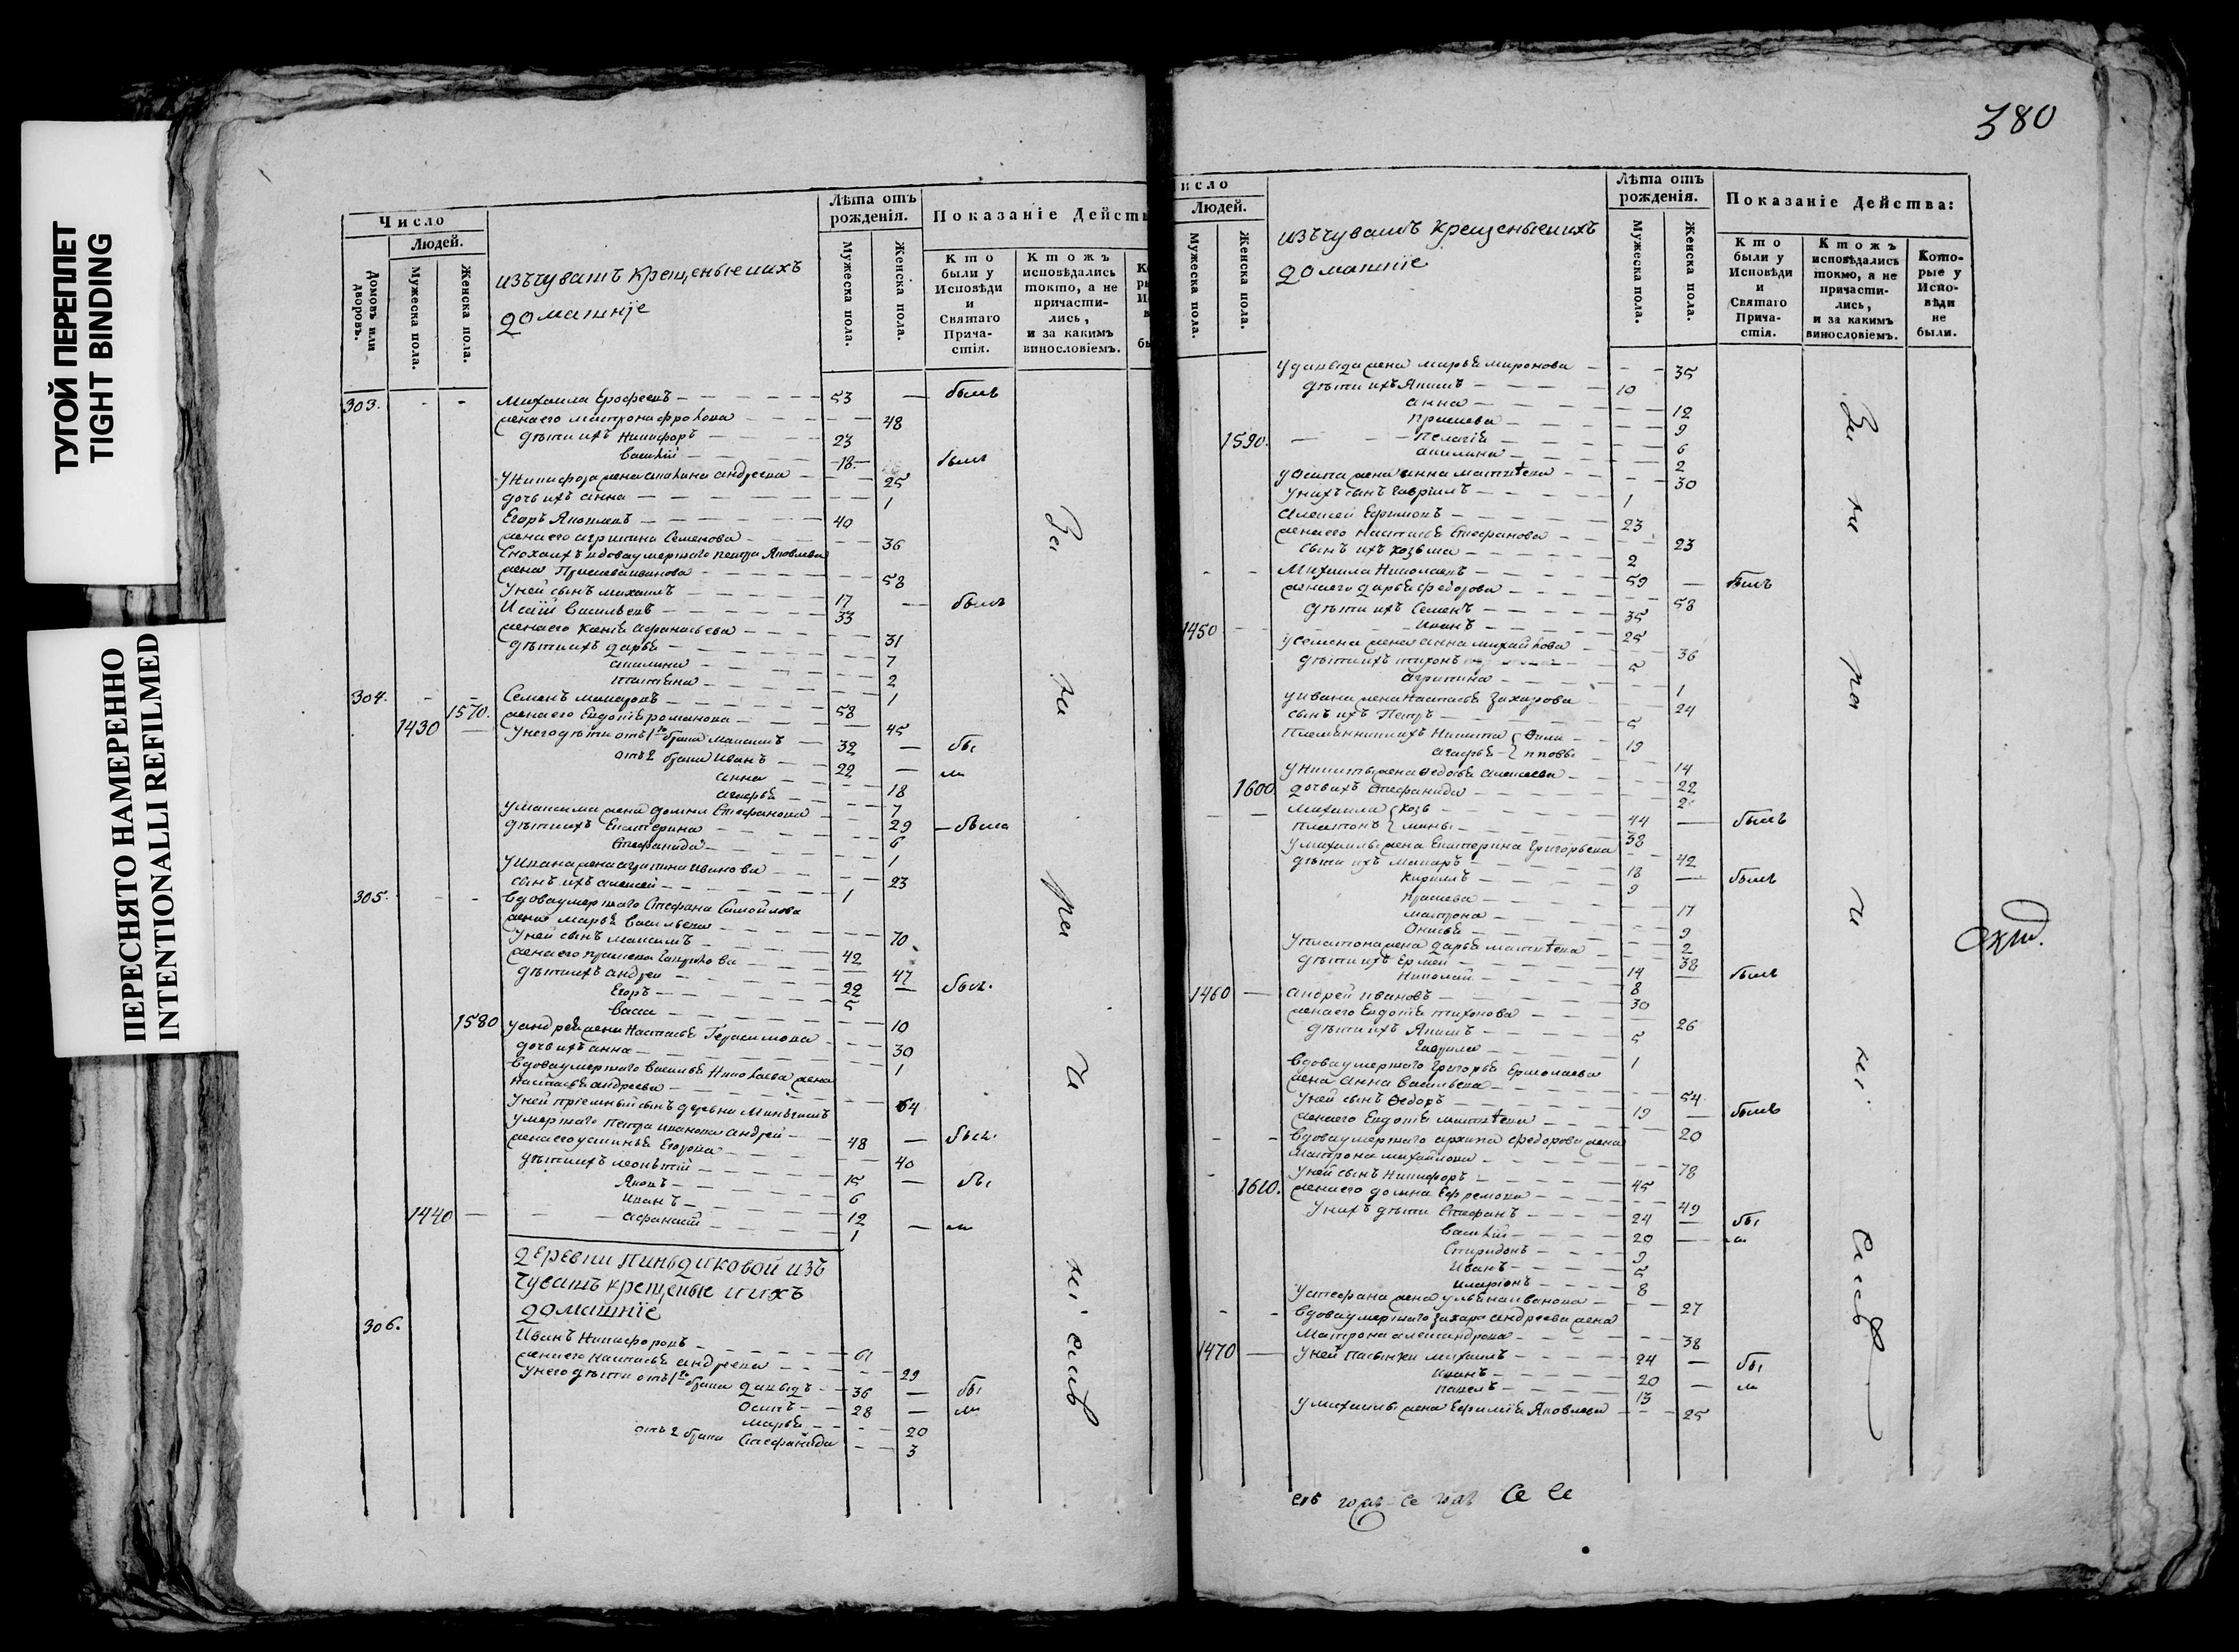 ТУГОЙ ПЕРЕПЛЕТ
TIGHT BINDING
ПЕРЕСНЯТО НАМЕРЕННО
INTENTIONALLI REFILMED
Число
Людей.
Домовъ или дворовъ.
Мужеска пола.
Женска пола.
изъ чувашъ крещеные и ихъ
домашнїе
Лѣта отъ рожденія.
Мужеска пола.
Женска пола.
Показаніе Дейст
Кто были у Исповѣди и Святаго Прича-стія.
Ктожъ исповѣдались токмо, а не причасти-лись, и за какимъ винословіемъ.
303. Михаила Ерофеевъ 53 былъ
жена его матрона фролова 48
дѣти ихъ Никифоръ 23
Василїй 18 былъ
у Никифора жена андреева 25
дочь ихъ анна 1
Егоръ Яковлевъ 40
жена его агрипина Семенова 36
вдова умершаго петра Яковлева
жена иванова 58
у ней сынъ михаилъ 17 былъ
Васильевъ 33
жена его Афанасьева 31
дѣти ихъ дарья 7
акилина 2
татьяна 1
304. Семенъ макаровъ 58
1570. жена его Евдотья романова 45
1430 у него дѣти отъ 1го брака максимъ 32 бы
отъ 2 брака Иванъ 22 ли
анна 18
агафья 7
у максима жена домна Стефанова 29 была
дѣти ихъ Екатерина 6
Стефанида 1
у Ивана жена агрипина иванова 23
сынъ ихъ алексей 1
305. вдова умершаго Стефана Самойлова
жена марья Васильева 70
у ней сынъ максимъ 42
жена его Гаврилова 47
дѣти ихъ андрей 22 былъ
Егоръ 5
1580 Васса 10
у андрея жена Настасья Герасимова 30
дочь ихъ анна 1
вдова умершаго Василья Николаева жена
настасья андреева 64
у ней прїемный сынъ деревни
умершаго петра иванова андрей 48 былъ
жена его устинья Егорова 40
дѣти ихъ леонтїй 15 бы
Яковъ 6
Иванъ 12
1440 афанасїй 1 ли
деревни пиньдиковой изъ
чувашъ крещеные и ихъ
домашнїе
306. Иванъ Никифоровъ 61
жена его настасья андреева 29
у него дѣти отъ 1го брака давыдъ 36 бы
Осипъ 28 ли
Марья 20
отъ 2 брака Стефанида 3
За
ра
исло
Людей.
Мужеска пола.
Женска пола.
изъ чувашъ крещеные и ихъ
домашнїе
Лѣта отъ рожденія.
Мужеска пола.
Женска пола.
Показаніе Действа:
Кто были у Исповѣди и Святаго Прича-стія.
Ктожъ исповѣдались токмо, а не причасти-лись, и за какимъ винословіемъ.
Кото-рые у Испо-вѣди не были.
380
у давыда жена марья миронова 35
дѣти ихъ Якимъ 10
анна 12
9
1590. пелагїя 6
акилина 2
у Осипа жена анна матвѣева 30
у нихъ сынъ гаврїилъ 1
алексей Ефимовъ 23
жена его настасья Стефанова 23
сынъ ихъ козьма 2
Михаила Николаевъ 59 былъ
жена его дарья федорова 58
дѣти ихъ Семенъ 35
1450 Иванъ 25
у Семена жена анна михайлова 36
дѣти ихъ тихонъ 5
агрипина 1
у ивана жена Настасья Захарова 24
сынъ ихъ Петръ 5
племянники ихъ Никита 19
агафья 14
у Никиты жена федосья алексеева 22
1600 дочь ихъ Стефанида 2
михаила козь 44 былъ
платонъ мины 38
у михаилы жена Екатерина Григорьева 42
дѣти ихъ макаръ 18 былъ
Кирилъ 9
17
матрона 9
2
у платона жена дарья матвѣева 38
дѣти ихъ Ермей 14 былъ
Николай 8
1460 андрей ивановъ 30
жена его Евдотья тихонова 26
дѣти ихъ Якимъ 5
Гаврила 1
вдова умершаго Григорья Ермолаева
жена анна Васильева 54
у ней сынъ Федоръ 19 былъ
жена его Евдотья матвѣева 20
вдова умершаго архипа федорова жена
матрона михайлова 78
у ней сынъ Никифоръ 45
1610. жена его домна Ефремова 49
у нихъ дѣти Стефанъ 24 бы
Василїй 20 ли
Спиридонъ 9
Иванъ 5
иларїонъ 8
у стефана жена ульяна иванова 27
вдова умершаго захара андреева жена
матрона александрова 38
1470 у ней пасынки михаилъ 24 бы
иванъ 20 ли
павелъ 13
у михаилы жена Ефимїя Яковлева 25
За
ра